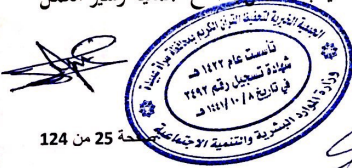 الجمعية الخيرية لتحفيظ القرآن الكريم بمحافظة سراة عبيدة
تأسست عام ١٤٢٢ هـ
شهادة تسجيل رقم ٣٤٩٢
في تاريخ ١٤٤١/١٠/٨ هـ
وزارة الموارد البشرية والتنمية الاجتماعية
صفحة 25 من 124